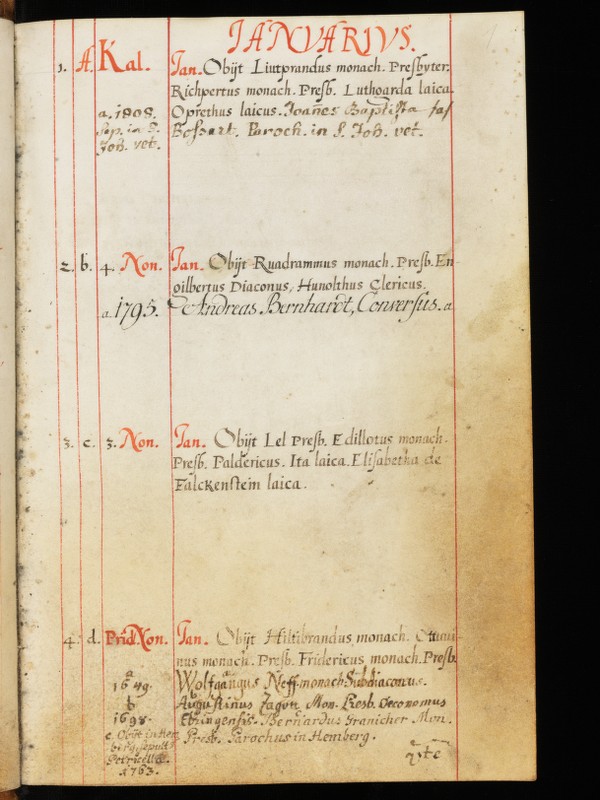 IANVARIVS.
1. A. Kal. Ian. Obijt Liutprandus monach. Presbyter.
Richpertus monach. Presb. Luthgarda laica
a. 1808. Oprethus laicus. Joañes Baptista
sep. in S. Bossart. Paroch. in S. Joh. vet.
Joh. vet.
2. b. 4. Non. Ian. Obijt Ruadrammus monach. Presb. En-
gilbertus Diaconus, Hunolthus Clericus.
a. 1795. Andreas Bernhardt, Conversus. a
3. c. 3. Non. Ian. Obijt Lel Presb. Edillotus monach.
Presb. Paldericus. Ita laica. Elisabetha de
Falckenstein laica.
4. d. Prid. Non. Ian. Obijt Hiltibrandus monach.
nus monach. Presb. Fridericus monach. Presb.
a
1649. Wolfgangus Neff monach Subdiaconus.
b Augustinus Zagott Mon. Presb. Oeconomus
1698. Ebringensis. Bernardus Granicher Mon.
c. Obijt in Hem Presb. Parochus in Hemberg.
berg, sepult
1763.